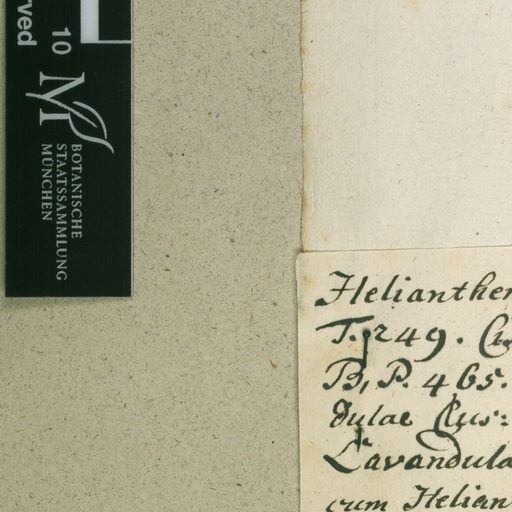 rved
10
BOTANISCHE
STAATSSAMMLUNG
MÜNCHEN
Helianthe
T. 249.
B, P. 465.
dulae Clus:
Lavandula
cum Helian